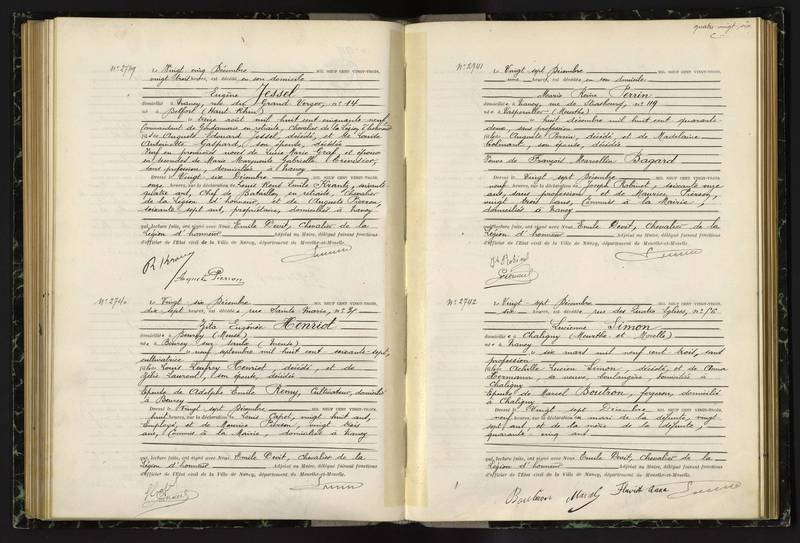 quatre vingt six
N° 2739
Le Vingt cinq Décembre MIL NEUF CENT VINGT-TROIS,
vingt trois heures, est décédé en son domicile
Eugène Jessel
domicilié à Nancy, rue du Grand Verger, n° 14
né à Belfort (Haut Rhin)
le treize août mil huit cent cinquante neuf,
Commandant de Gendarmerie en retraite, Chevalier de la Légion d'honneur
fils de Auguste Edouard Jessel, décédé, et de Louise
Antoinette Gaspard, son épouse, décédée
Veuf en premières noces de Lucie Marie Graf, et époux
en secondes de Marie Marguerite Gabrielle
sans profession, domiciliée à Nancy
Dressé le Vingt six Décembre MIL NEUF CENT VINGT-TROIS,
onze heures, sur la déclaration de Louis René Emile Krantz, soixante
quatre ans, Chef de Bataillon en retraite, Chevalier
de la Légion d'honneur, et de Auguste Pierron,
soixante sept ans, propriétaire, domiciliés à Nancy
qui, lecture faite, ont signé avec Nous, Emile Devit, Chevalier de la
Légion d'honneur Adjoint au Maire, délégué faisant fonctions
d'officier de l'Etat civil de la Ville de Nancy, département de Meurthe-et-Moselle.
Pierron
N° 2740
Le Vingt six Décembre MIL NEUF CENT VINGT-TROIS,
dix sept heures, est décédée rue Sainte Marie, n°
Zita Eugénie Henriol
domiciliée à Beurey (Meuse)
née à Beurey sur Saulx (Meuse)
le neuf septembre mil huit cent soixante sept,
cultivatrice
fille de Louis Henriol décédé, et de
Zélie Laurent, son épouse, décédée
Epouse de Adolphe Emile Remy, Cultivateur, domicilié
à Beurey
Dressé le Vingt sept Décembre MIL NEUF CENT VINGT-TROIS,
huit heures, sur la déclaration de Capel, vingt huit ans,
Employé, et de Maurice Pierson, vingt trois
ans, Commis à la Mairie, domiciliés à Nancy
qui, lecture faite, ont signé avec Nous, Emile Devit, Chevalier de la
Légion d'honneur Adjoint au Maire, délégué faisant fonctions
d'officier de l'Etat civil de la Ville de Nancy, département de Meurthe-et-Moselle.
N° 2741
Le Vingt sept Décembre MIL NEUF CENT VINGT-TROIS,
une heure, est décédée en son domicile
Marie Reine Perrin
domiciliée à Nancy, rue de Strasbourg, n° 119
née à (Meurthe)
le huit décembre mil huit cent quarante
deux, sans profession
fille de Auguste Perrin, décédé, et de Madeleine
son épouse, décédée
Veuve de François Marcellin Bagard
Dressé le Vingt sept Décembre MIL NEUF CENT VINGT-TROIS,
neuf heures, sur la déclaration de Joseph Robinet, soixante onze
ans, sans profession, et de Maurice Pierson,
vingt trois ans, Commis à la Mairie,
domiciliés à Nancy
qui, lecture faite, ont signé avec Nous, Emile Devit, Chevalier de la
Légion d'honneur Adjoint au Maire, délégué faisant fonctions
d'officier de l'Etat civil de la Ville de Nancy, département de Meurthe-et-Moselle.
N° 2742
Le Vingt sept Décembre MIL NEUF CENT VINGT-TROIS,
six heures, est décédée rue des Quatre Eglises, n°
Lucienne Simon
domiciliée à Chaligny (Meurthe et Moselle)
née à Nancy
le six mars mil neuf cent trois, sans
profession
fille de Achille Lucien Simon, décédé, et de Anna
Hermann, sa veuve, boulangère, domiciliée à
Chaligny
Epouse de Marcel Boutron, forgeron, domicilié
à Chaligny
Dressé le Vingt sept Décembre MIL NEUF CENT VINGT-TROIS,
neuf heures, sur la déclaration du mari de la défunte, vingt
sept ans, et de la mère de la défunte,
quarante cinq ans
qui, lecture faite, ont signé avec Nous, Emile Devit, Chevalier de la
Légion d'honneur Adjoint au Maire, délégué faisant fonctions
d'officier de l'Etat civil de la Ville de Nancy, département de Meurthe-et-Moselle.
Boutron